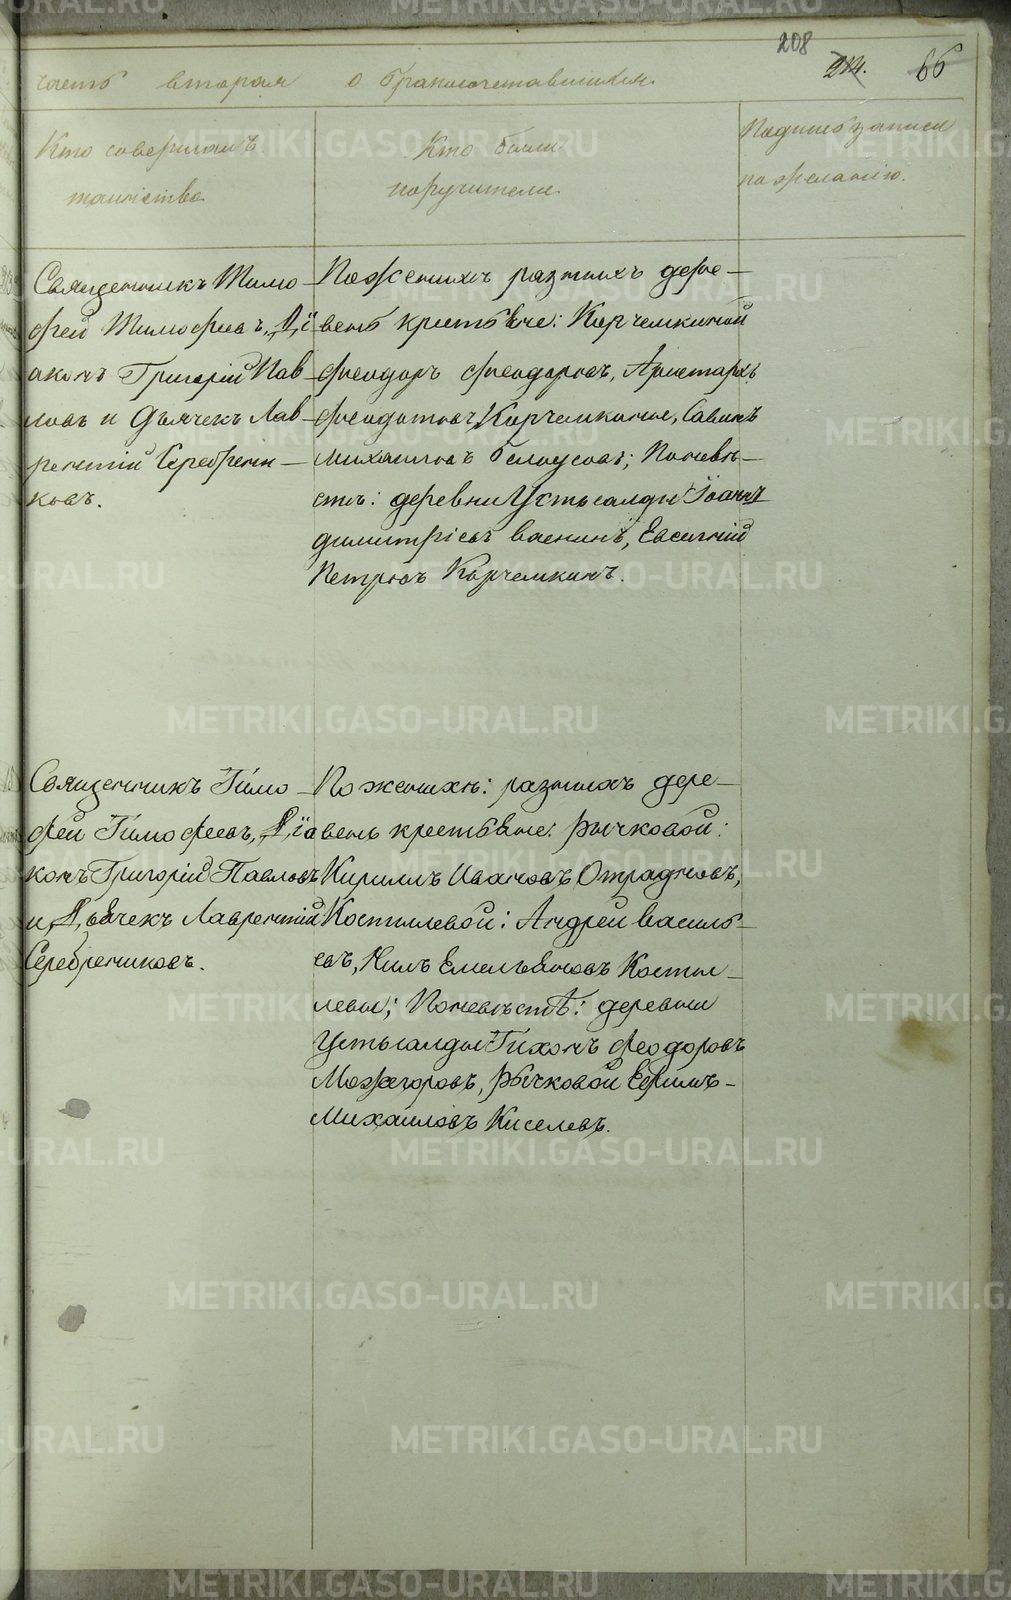 208
214. 66
часть вторая о бракосочетавшихся.
Кто совершалъ
таинство
Кто были
поручители.
Подпись записи
по желанію.
Священникъ Тимо–
фей Тимофеевъ, Дi–
аконъ Григорій Пав–
ловъ и Дьячекъ Лав–
рентій Серебрени–
ковъ.
По женихѣ разныхъ дере–
вень крестьяне: Корчемкиной
Феодоръ Феодоровъ, Аристархъ
Феодотовъ Корчемкины, Савинъ
Михаиловъ Белоусовъ; По невѣ–
стѣ: деревни Устьсалды Іоаннъ
Димитріевъ Ваенинъ, Евсигній
Петровъ Корчемкинъ.
Священникъ Тимо–
фей Тимофеевъ, Діа
конъ Григорій Павловъ
и Дьячекъ Лаврентій
Серебрениковъ.
По женихѣ: разныхъ дере–
вень крестьяне: Рычковой:
Кириллъ Ивановъ Отрадновъ,
Костылевой: Андрей Василь–
евъ, Нилъ Емельяновъ Косты–
левы; По невѣстѣ: деревни
Устьсалды Тихонъ Феодоровъ
Мохоровъ, Рычковой Ефимъ–
Михаиловъ Киселевъ.
METRIKI.GASO-URAL.RU